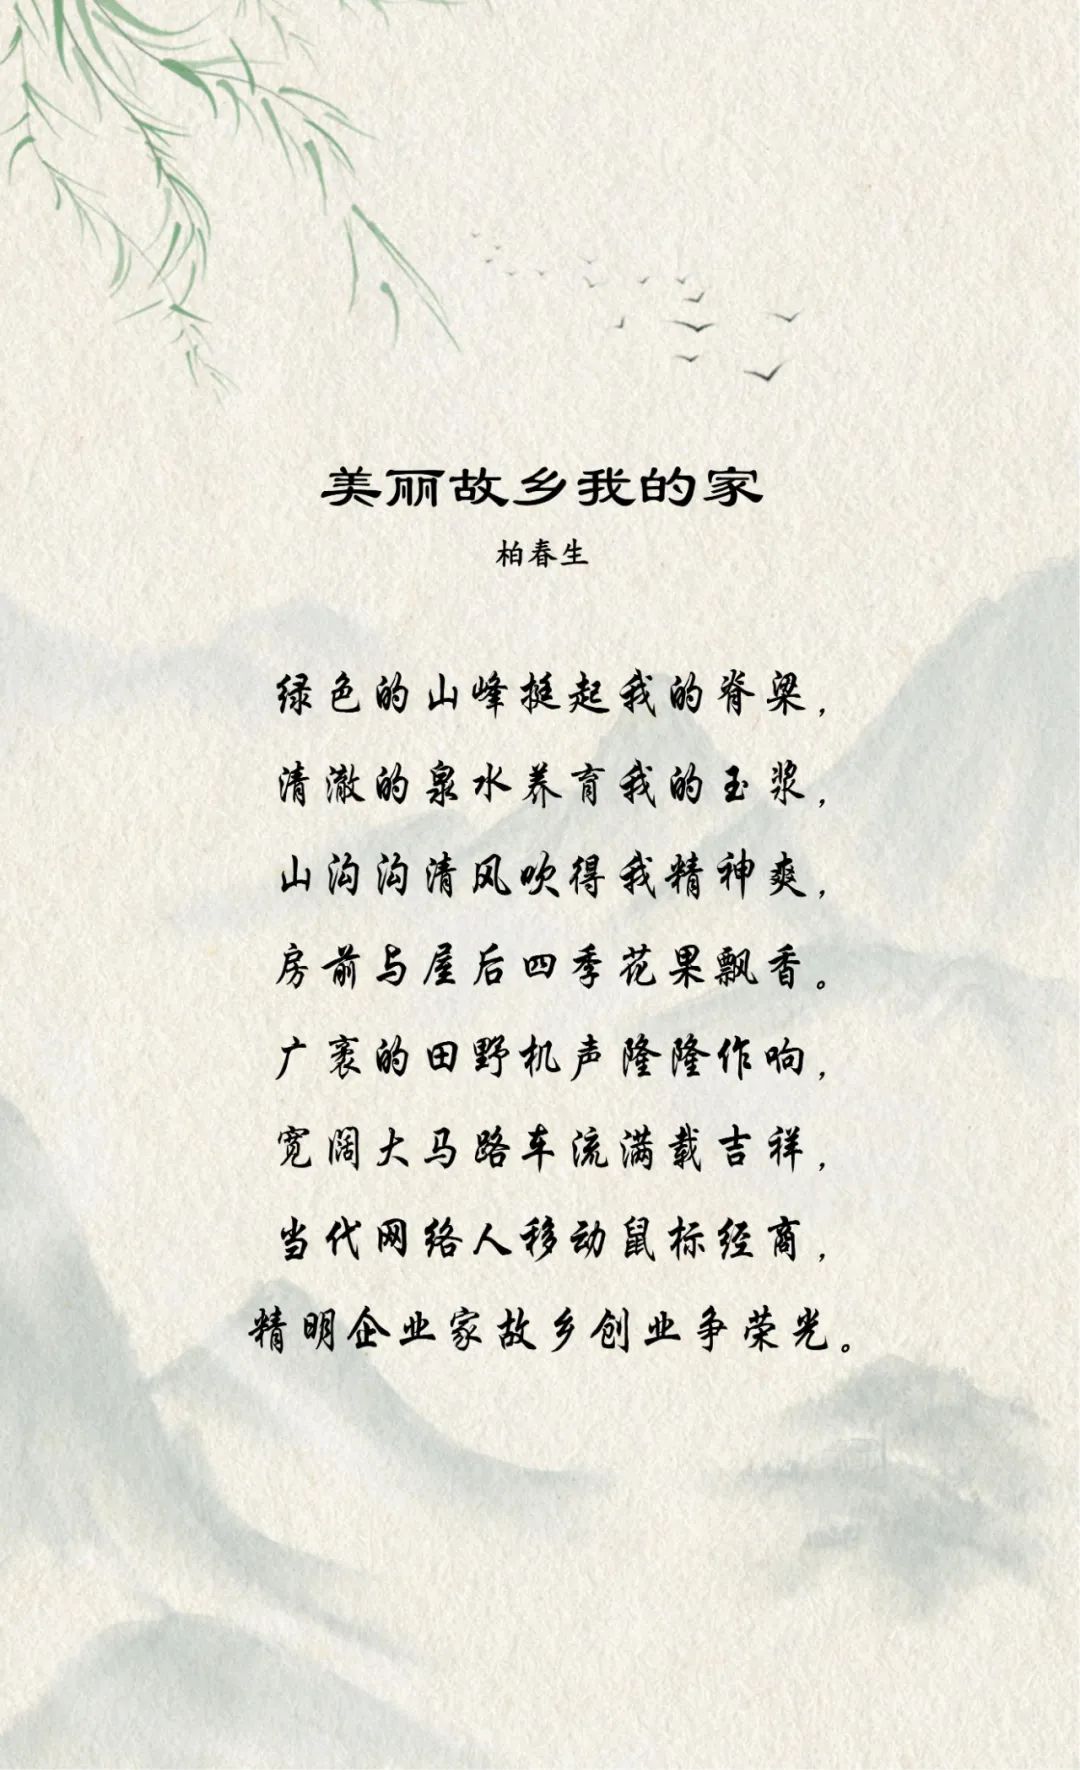 美丽故乡我的家
柏春生
绿色的山峰挺起我的脊梁，
清澈的泉水养育我的玉浆，
山沟沟清风吹得我精神爽，
房前与屋后四季花果飘香。
广袤的田野机声隆隆作响，
宽阔大马路车流满载吉祥，
当代网络人移动鼠标经商，
精明企业家故乡创业争荣光。